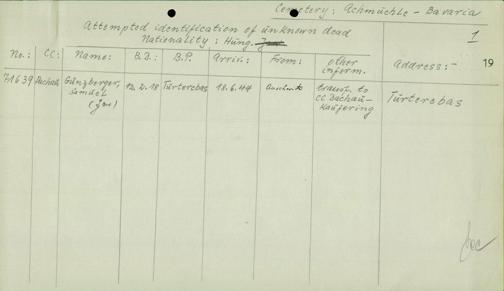 Cemetery: Achmühle - Bavaria
Attempted identification of unknown dead
Nationality: Hung.
1
19
No.: CC: Name: B.D.: B.P. Arriv.: From: other inform. Address:-
71639 Dachau Günzberger, Samuel (Jew) 12.2.18 Türterebas 18.6.44 Auschwitz transf. to CC Dachau-Kaufering Türterebas